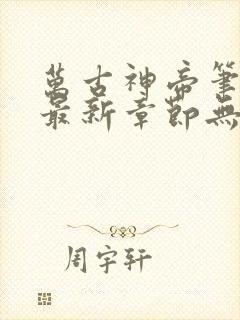 萬古神帝筆
最新章節無
周宇轩